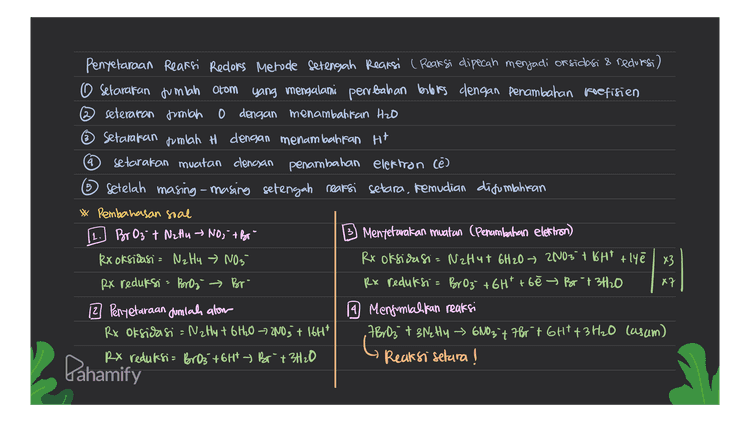 Penyetaraan Reaksi Redoks Metode Setengah Reaksi (Reaksi dipecah menjadi oksidasi & reduksi)
① Setarakan jumlah atom yang mengalami perubahan biloks dengan penambahan koefisien
② setarakan jumlah O dengan menambahkan H₂O
③ Setarakan jumlah H dengan menambahkan H⁺
④ setarakan muatan dengan penambahan elektron (ē)
⑤ Setelah masing-masing setengah reaksi setara, kemudian dijumlahkan
※ Pembahasan soal
1. BrO₃⁻ + N₂H₄ → NO₃⁻ + Br⁻
Rx oksidasi = N₂H₄ → NO₃⁻
Rx reduksi = BrO₃⁻ → Br⁻
2 Penyetaraan jumlah atom
Rx oksidasi = N₂H₄ + 6H₂O → 2NO₃⁻ + 16H⁺
Rx reduksi = BrO₃⁻ + 6H⁺ → Br⁻ + 3H₂O
3 Menyetarakan muatan (Penambahan elektron)
Rx oksidasi = N₂H₄ + 6H₂O → 2NO₃⁻ + 16H⁺ + 14ē | x3
Rx reduksi = BrO₃⁻ + 6H⁺ + 6ē → Br⁻ + 3H₂O | x7
4 Menjumlahkan reaksi
7BrO₃⁻ + 3N₂H₄ → 6NO₃⁻ + 7Br⁻ + 6H⁺ + 3H₂O (asam)
↳ Reaksi setara!
Pahamify